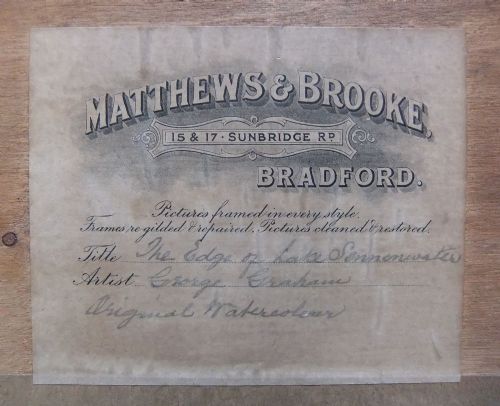 MATTHEWS & BROOKE,
15 & 17 · SUNBRIDGE RD
BRADFORD.
Pictures framed in every style.
Frames re-gilded & repaired. Pictures cleaned & restored.
Title The Edge of Lake Semmerwater
Artist George Graham
Original Watercolour